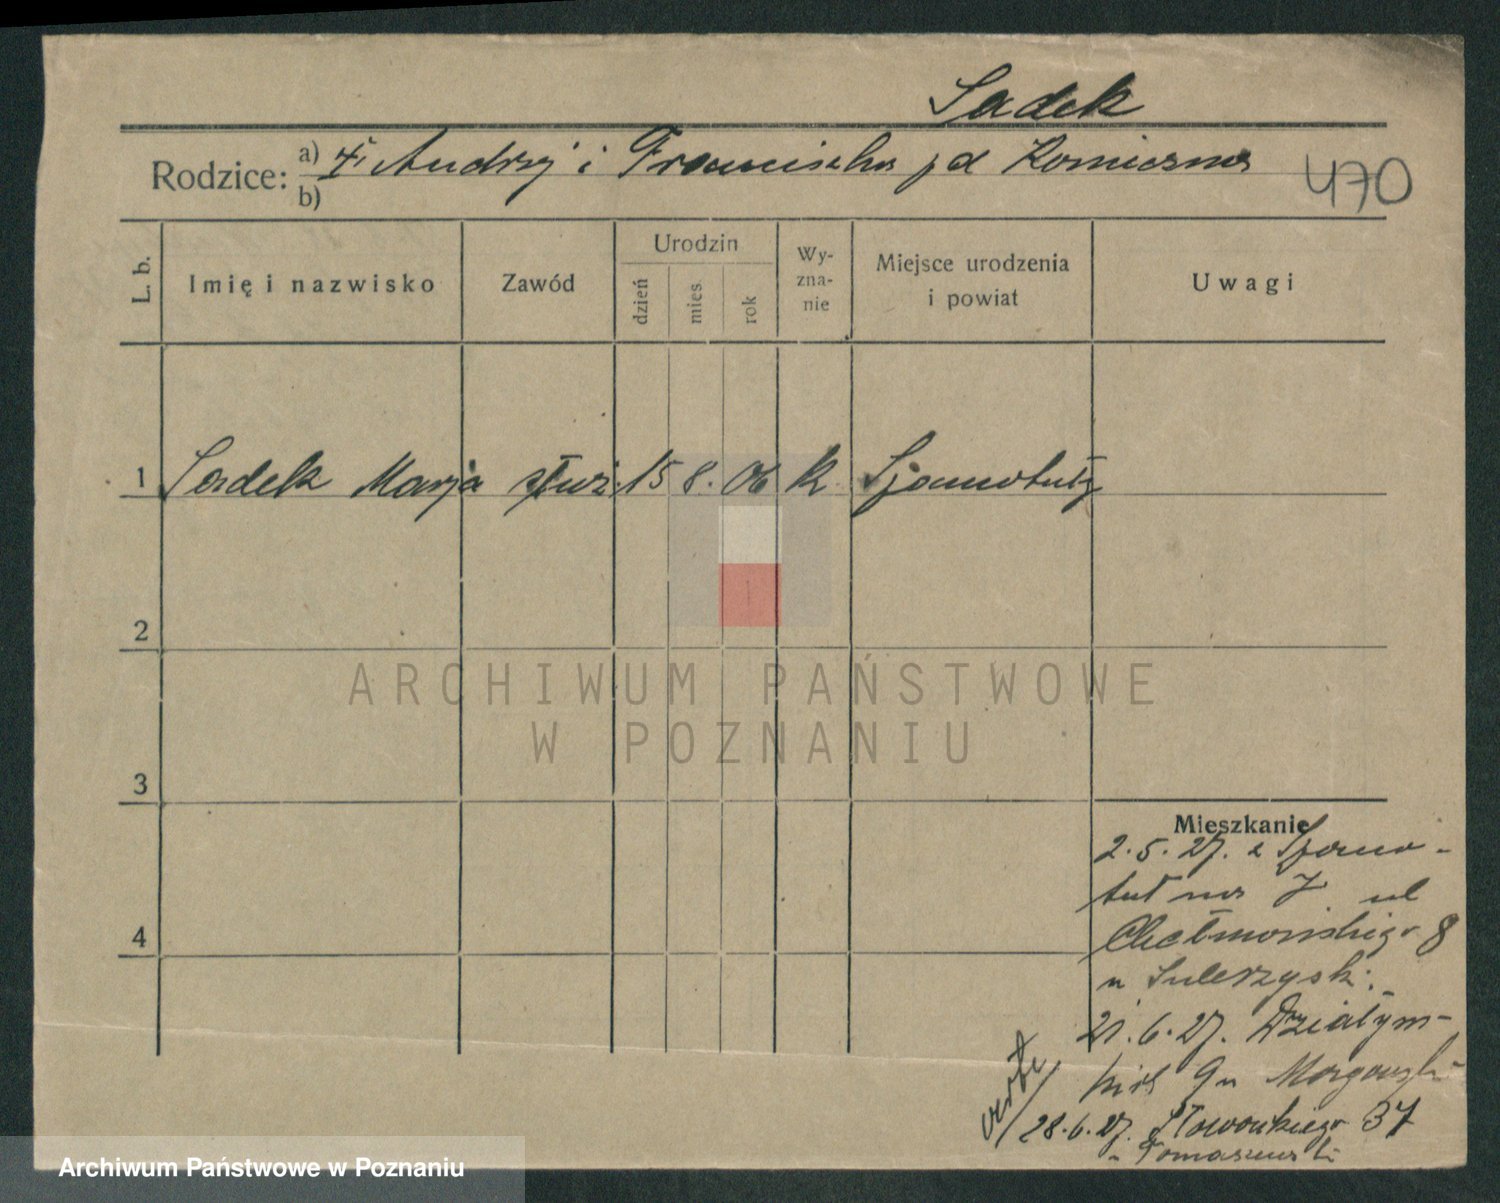 Sadek
Rodzice: a) Andrzej i Franciszka z d Konieczna
b)
470
L. b.
Imię i nazwisko
Zawód
Urodzin
dzień
mies.
rok
Wy-
zna-
nie
Miejsce urodzenia
i powiat
Uwagi
1 Sadek Marja służ. 15 8. 06 k. Szamotuły
2
3
4
Mieszkanie
2.5.27. z Szamo-
tuł na ul
Chełmońskiego 8
u Sulerzysk.
21.6.27. Działyń-
skich 9 u
28.6.27. Słowackiego 37
u Tomaszewski
verte
ARCHIWUM PAŃSTWOWE
W POZNANIU
Archiwum Państwowe w Poznaniu